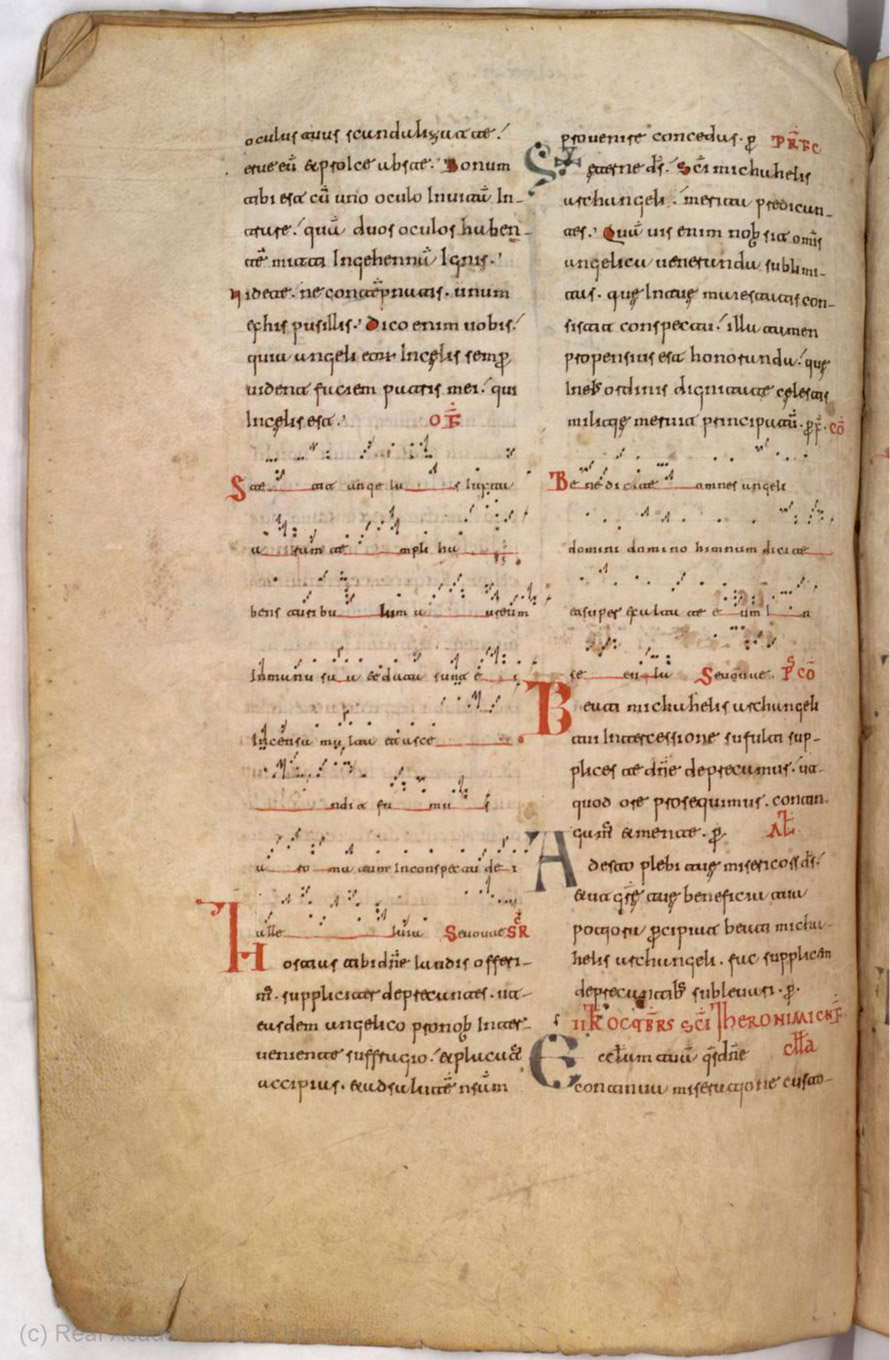 oculus tuus scandalizat te.
erue eū & proice abs te. Bonum
tibi est cū uno oculo In uitā In-
trare. quā duos oculos haben-
tē mitti In gehennā Ignis.
Uidete. ne contēpnatis. unum
ex his pusillis. Dico enim uobis.
quia angeli eoꝝ In cęlis semꝑ
uident faciem patris mei. qui
In cęlis est. OF̄
Ste tit ange lu s Iuxta
a ram te mpli ha
bens turibu lum a ureum
In manu su a & data sunt e i
Incensa multa et asce
ndit fu mu s
a ro matum In conspectu de i
alle luia Seuouae SR̄
Hostias tibi dn̄e laudis offeri-
m̄. suppliciter deprecantes. ut-
eusdem angelico pro nob̄ Inter-
ueniente suffragio. & placatā
accipias. & ad salutē nr̄am
prouenire concedas. ꝑ PR̄EFC
eterne dṡ. Sc̄i michahelis
archangeli. merita predican-
tes. Quāuis enim nob̄ sit omīs
angelica ueneranda sublimi-
tas. quę In tuę maiestatis con-
sistit conspectu. illa tamen
propensius est honoranda. quę
In eī ordinis dignitate cęlestis
militię meruit principatū. ꝑ x̄. CŌ
Be ne di cite omnes angeli
domini domino himnum dicite
et super exaltate e um I n
se cu la Seuouae. P̄ CŌ
Beati michahelis archangeli
tui Intercessione suffulti sup-
plices te dn̄e deprecamus. ut-
quod ore prosequimus. contin-
gam̄ & mente. ꝑ. AL̄
Adesto plebi tuę misericors dṡ.
& ut gr̄ę tuę beneficia tua
potiora ꝑcipiat beati micha-
helis archangeli. fac supplicem
deprecantib̄ subleuari. ꝑ.
II K̄ OCTB̄RS SC̄I IHERONIMI CNF̄
Ecclam tuā qs̄ dn̄e cll̄a
continua miseratione custo-